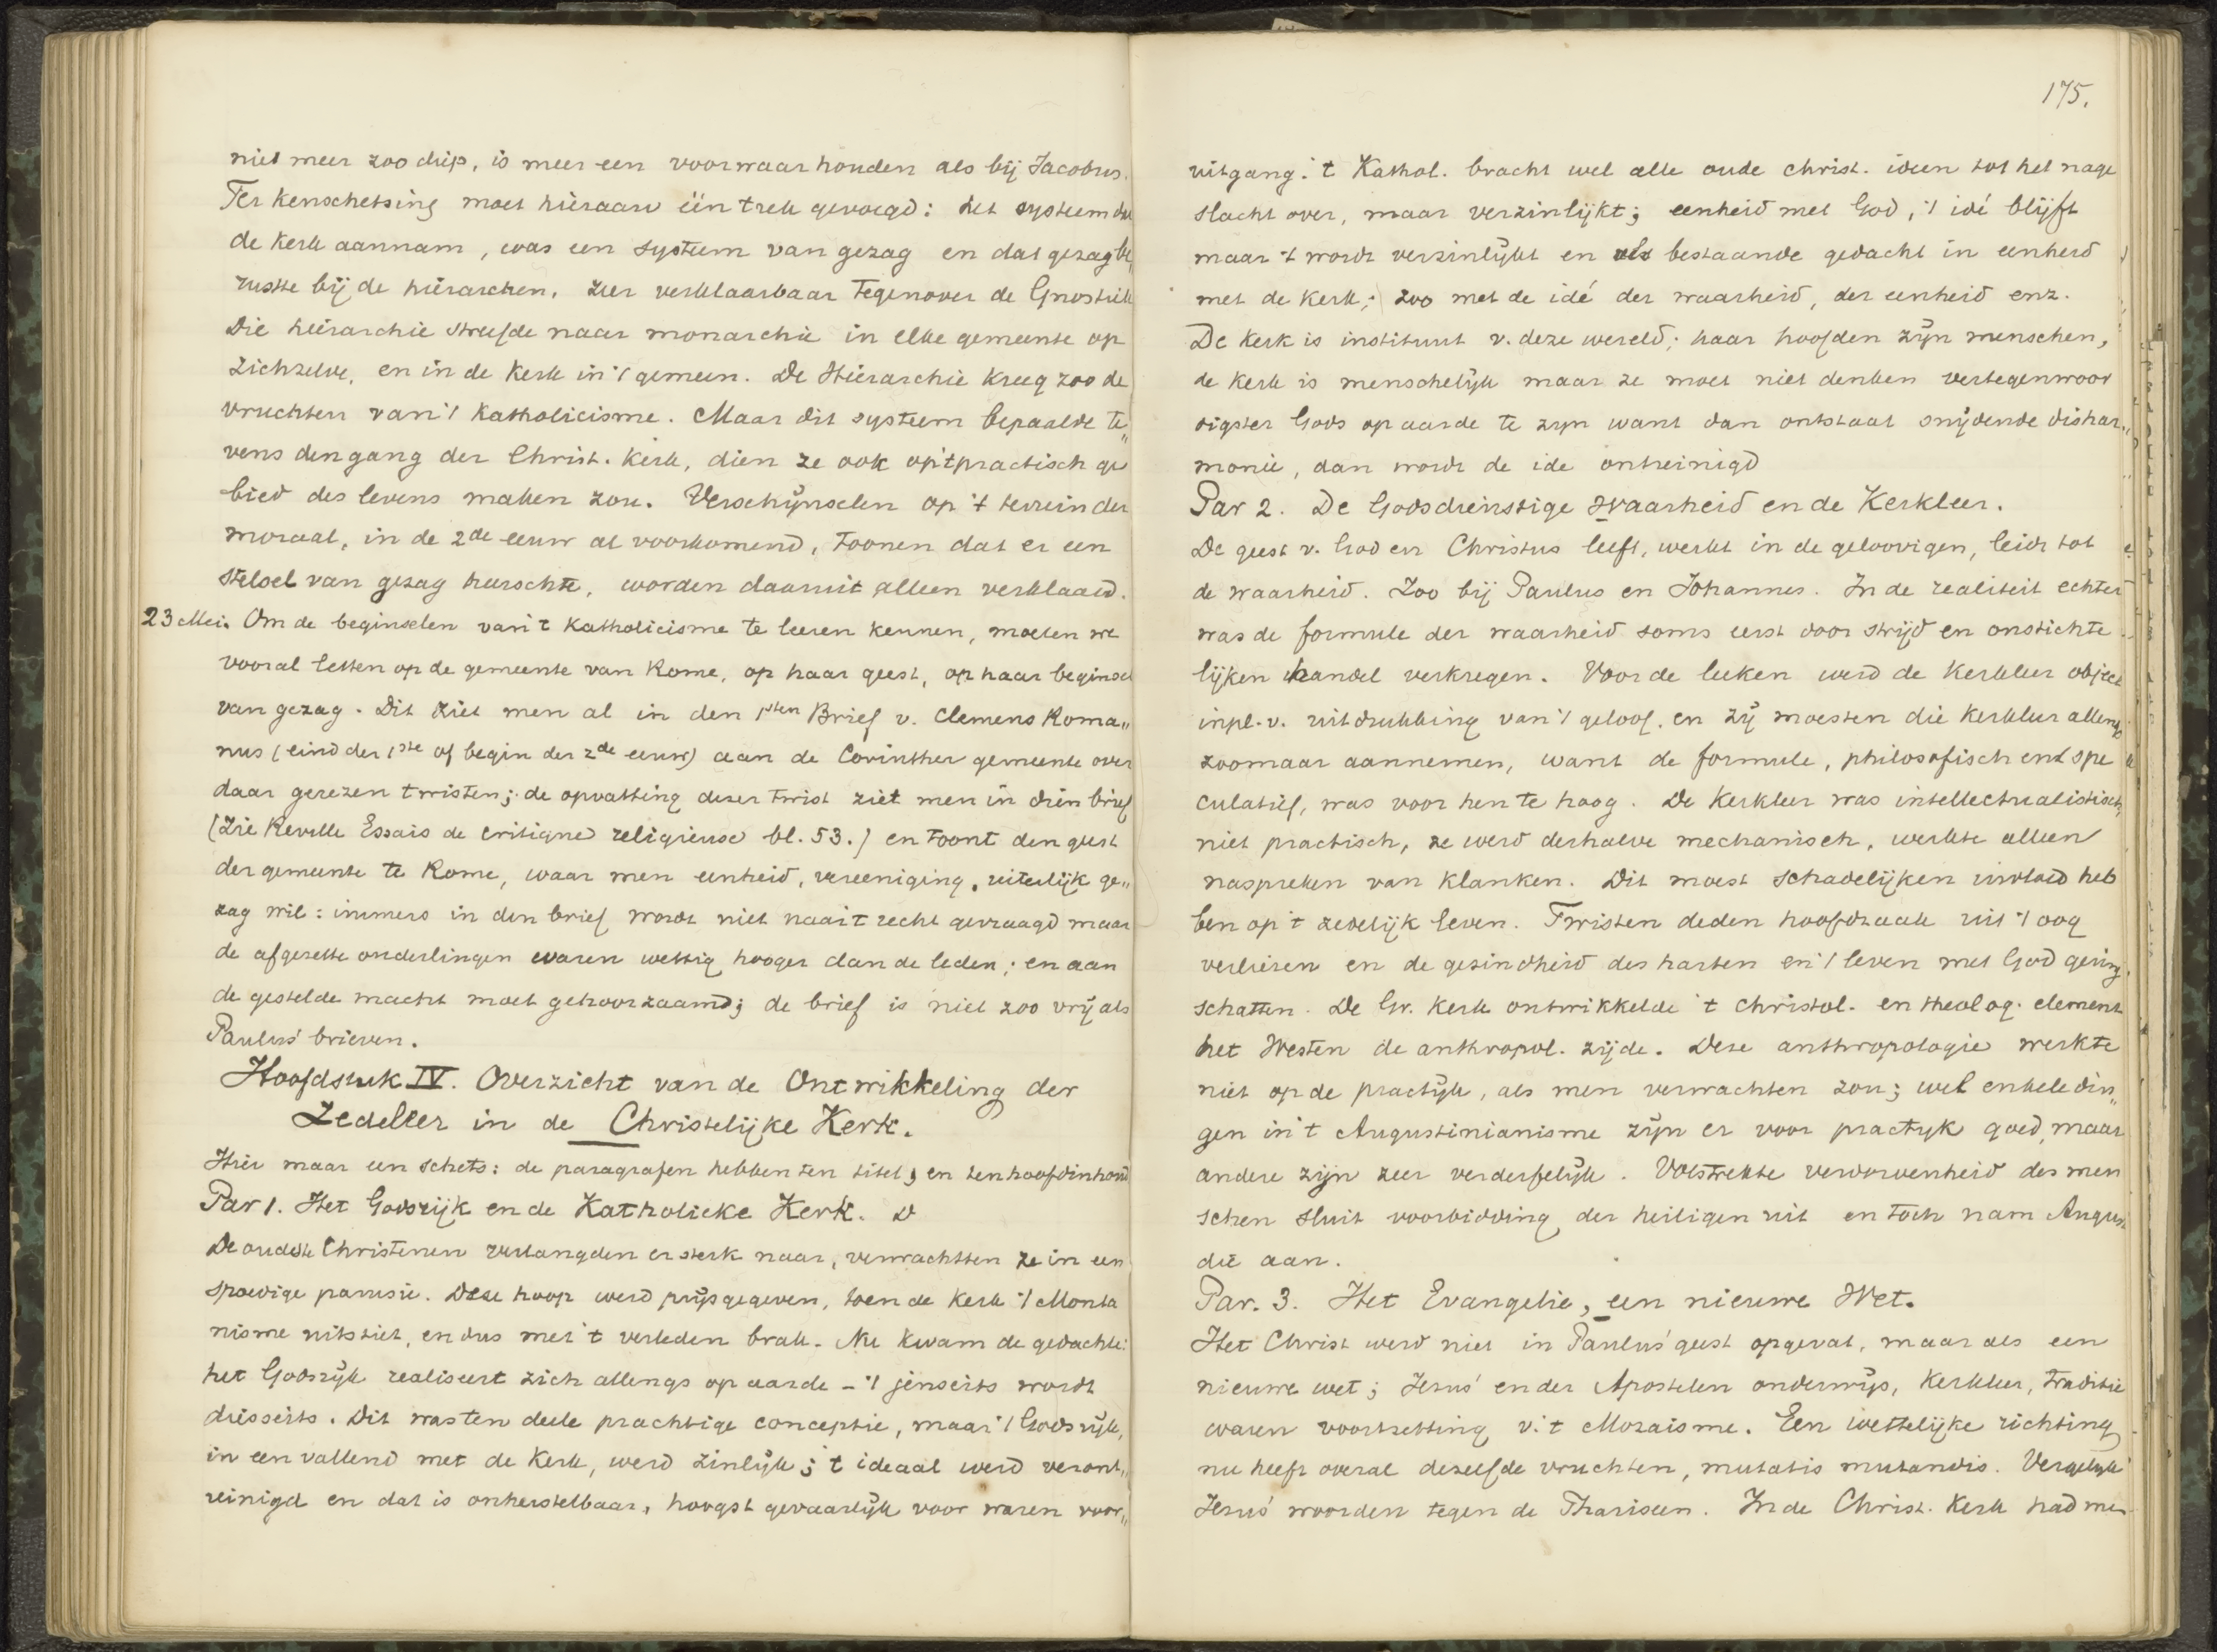 niet meer zoo diep, is meer een voorwaar houden als bij Jacobus.
Ter kenschetsing moet hieraan één trek gevoegd: het systeem dat
de Kerk aannam, was een systeem van gezag en dat gezag be„
rustte bij de hiërarchen, zeer verklaarbaar tegenover de Gnostiek
Die hiërarchie streefde naar monarchie in elke gemeente op
zichzelve, en in de Kerk in 't gemeen. De Hiërarchie kreeg zoo de
vruchten van 't Katholicisme. Maar dit systeem bepaalde te„
vens den gang der Christ. Kerk, dien ze ook op 't practisch ge
bied des levens maken zou. Verschijnselen op 't terrein der
moraal, in de 2de eeuw al voorkomend, toonen dat er een
stelsel van gezag heerschte, worden daaruit alleen verklaard.
23 Mei. Om de beginselen van 't Katholicisme te leeren kennen, moeten we
vooral letten op de gemeente van Rome, op haar geest, op haar beginsel
van gezag. Dit ziet men al in den 1sten Brief v. Clemens Roma„
nus (eind der 1ste of begin der 2de eeuw) aan de Corinther gemeente over
daar gerezen twisten; de opvatting dezer twist ziet men in dien brief
(Zie Reville Essais de critique religieuse bl. 53.) en toont den geest
der gemeente te Rome, waar men eenheid, vereeniging, uiterlijk ge„
zag wil: immers in den brief wordt niet naar 't recht gevraagd maar
de afgezette onderlingen waren wettig hooger dan de leden; en aan
de gestelde macht moet gehoorzaamd; de brief is niet zoo vrij als
Paulus' brieven.
Hoofdstuk IV. Overzicht van de Ontwikkeling der
Zedeleer in de Christelijke Kerk.
Hier maar een schets: de paragrafen hebben ten titel, en ten hoofdinhoud
Par 1. Het Godsrijk en de Katholieke Kerk.
De oudste Christenen verlangden er sterk naar, verwachtten ze in een
spoedige parusie. Deze hoop werd prijsgegeven, toen de Kerk 't Monta
nisme uitstiet, en dus met 't verleden brak. Nu kwam de gedachte:
het Godsrijk realiseert zich allengs op aarde – 't jenseits wordt
diesseits. Dit was ten deele prachtige conceptie, maar 't Godsrijk,
in een vallend met de Kerk, werd zinlijk; 't ideaal werd veront„
reinigd en dat is onherstelbaar, hoogst gevaarlijk voor waren voor„
175.
uitgang. 't Kathol. bracht wel alle oude christ. ideen tot het nage
slacht over, maar verzinlijkt; eenheid met God, 't idé blijft
maar 't wordt verzinlijkt en als bestaande gedacht in eenheid
met de Kerk; zoo met de idé der waarheid, der eenheid enz.
De Kerk is instituut v. deze wereld; haar hoofden zijn menschen,
de Kerk is menschelijk maar ze moet niet denken vertegenwoor
digster Gods op aarde te zijn want dan ontstaat snijdende dishar„
monie, dan wordt de ide ontreinigd
Par 2. De Godsdienstige Waarheid en de Kerkleer.
De geest v. God en Christus leeft, werkt in de geloovigen, leidt tot
de waarheid. Zoo bij Paulus en Johannes. In de realiteit echter
was de formule der waarheid soms eerst door strijd en onstichte
lijken handel verkregen. Voor de leeken werd de Kerkleer object
inpl. v. uitdrukking van 't geloof. en zij moesten die Kerkleer allengs
zoomaar aannemen, want de formule, philosofisch en spe
culatief, was voor hen te hoog. De Kerkleer was intellectualistisch,
niet practisch, ze werd derhalve mechanisch, werkte alleen
naspreken van klanken. Dit moest schadelijken invloed heb
ben op 't zedelijk leven. Twisten deden hoofdzaak uit 't oog
verliezen en de gezindheid des harten en 't leven met God gering
schatten. De Gr. Kerk ontwikkelde 't christol. en theolog. element
het Westen de anthropol. zijde. Deze anthropologie werkte
niet op de practijk, als men verwachten zou; wel enkele din„
gen in 't Augustinianisme zijn er voor practijk goed, maar
andere zijn zeer verderfelijk. Volstrekte verdorvenheid des men
schen sluit voorbidding der heiligen uit en toch nam August
die aan.
Par. 3. Het Evangelie, een nieuwe Wet.
Het Christ werd niet in Paulus' geest opgevat, maar als een
nieuwe wet; Jesus' en der Apostelen onderwijs, Kerkleer, traditie
waren voortzetting v. 't Mozaisme. Een wettelijke richting
nu heeft overal dezelfde vruchten, mutatis mutandis. Vergelijk
Jesus' woorden tegen de Phariseen. In de Christ. Kerk had men